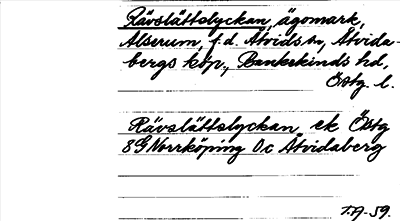 Rävslättslyckan, ägomark,
Alserum, f.d. Åtvids sn, Åtvida-
bergs köp., Bankekinds hd,
Östg. l.
Rävslättslyckan ek Östg
8G Norrköping 0c Åtvidaberg
T.A-59.